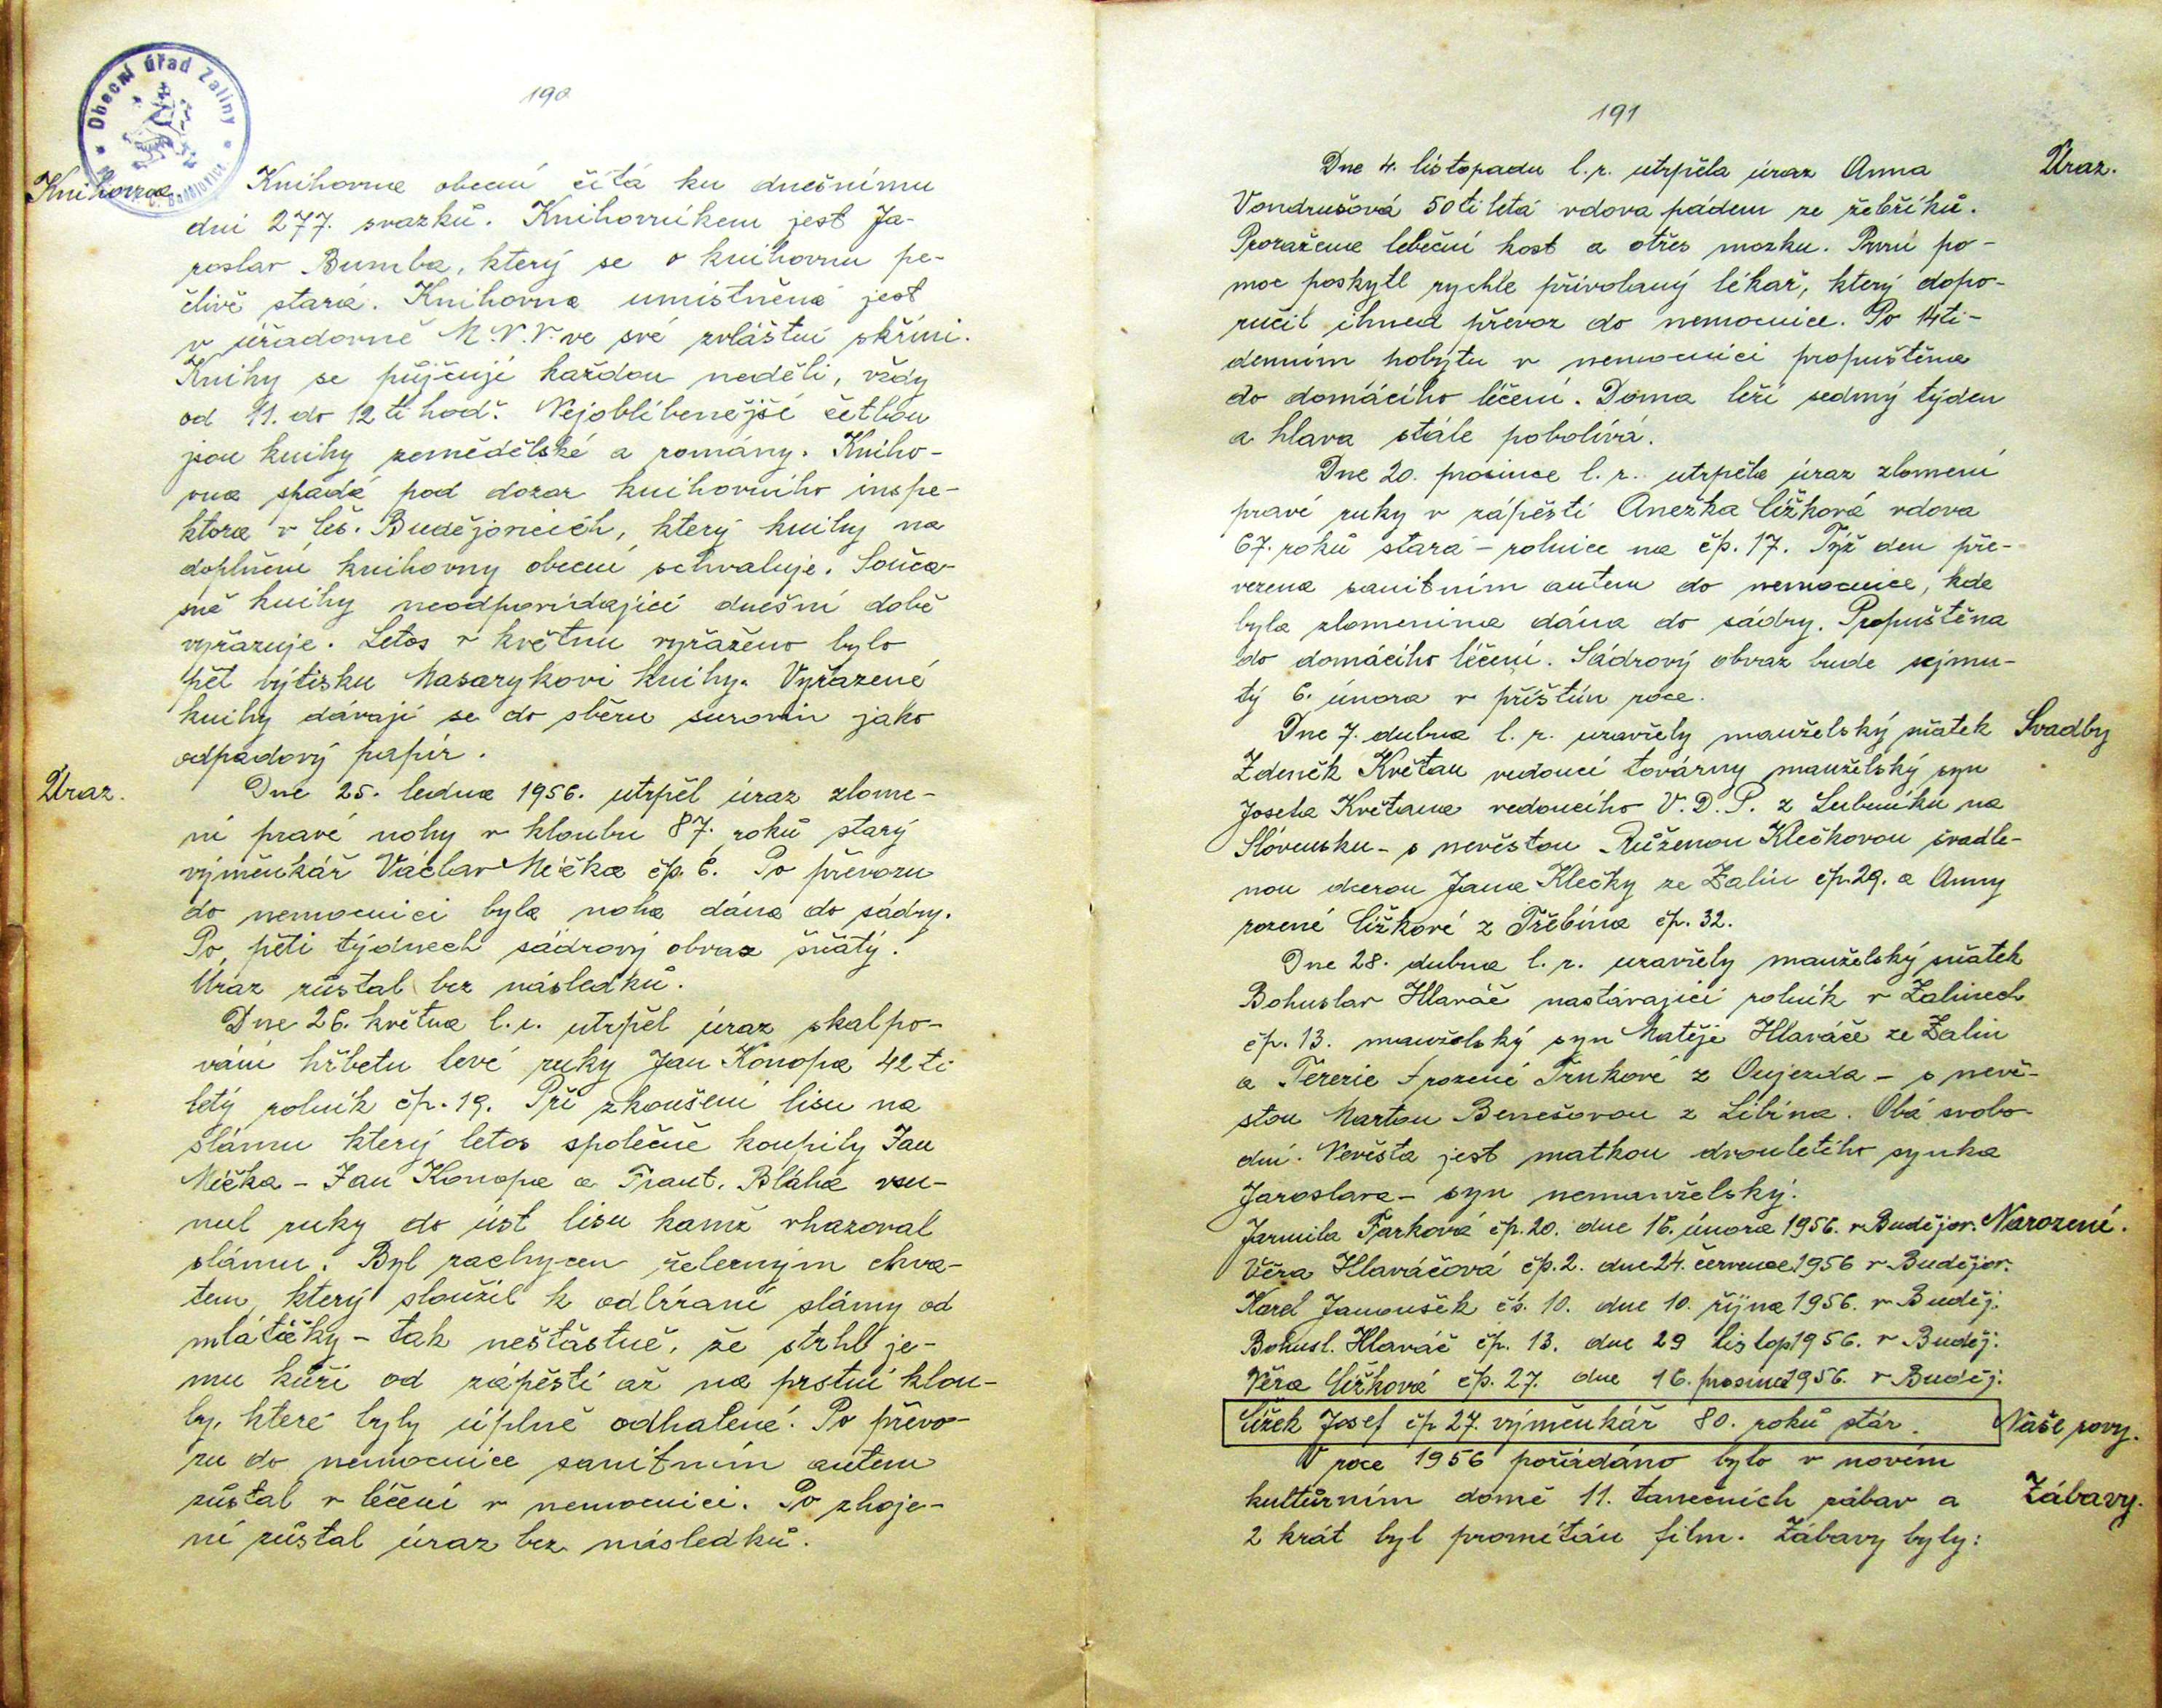 Obecní úřad Zaliny
190
Knihovna
Knihovna obecní čítá ku dnešnímu
dni 277. svazků. Knihovníkem jest Ja-
roslav Bumba, který se o knihovnu pe-
člivě stará. Knihovna umístněná jest
v úřadovně M.N.V. ve své zvláštní skříni.
Knihy se půjčují každou neděli, vždy
od 11. do 12 ti hod. Nejoblíbenější četbou
jsou knihy zemědělské a romány. Kniho-
vna spadá pod dozor knihovního inspe-
ktora v Čes. Budějovicích, který knihy na
doplnění knihovny obecní schvaluje. Souča-
sně knihy neodpovídající dnešní době
vyřazuje. Letos v květnu vyřaženo bylo
pět výtisku Masarykovi knihy. Vyřazené
knihy dávají se do sběru surovin jako
odpadový papír.
Úraz.
Dne 25. ledna 1956. utrpěl úraz zlome-
ní pravé nohy v kloubu 87. roků starý
výměnkář Václav Mička čp. 6. Po převozu
do nemocnici byla noha dána do sádry.
Po pěti týdnech sádrový obvaz sňatý.
Úraz zůstal bez následků.
Dne 26. května l.r. utrpěl úraz skalpo-
vání hřbetu levé ruky Jan Konopa 42 ti
letý rolník čp. 19. Při zkoušení lisu na
slámu který letos společně koupily Jan
Mička - Jan Konopa a Frant. Bláha vsu-
nul ruky do úst lisu kamž vhazoval
slámu. Byl zachycen železným chva-
tem, který sloužil k odbírání slámy od
mlátičky - tak nešťastně, že strhl je-
mu kůži od zápěstí až na prstní klou-
by, které byly úplně odhalené. Po převo-
zu do nemocnice sanitním autem
zůstal v léčení v nemocnici. Po zhoje-
ní zůstal úraz bez následků.
191
Úraz.
Dne 4. listopadu l.r. utrpěla úraz Anna
Vondrušová 50 ti letá vdova pádem ze žebříků.
Proražena lebeční kost a otřes mozku. První po-
moc poskytl rychle přivolaný lékař, který dopo-
ručil ihned převoz do nemocnice. Po 14ti-
denním pobytu v nemocnici propuštěna
do domácího léčení. Doma leží sedmý týden
a hlava stále pobolívá.
Dne 20. prosince l.r. utrpěla úraz zlomení
pravé ruky v zápěstí Anežka Čížková vdova
67. roků stará - rolnice na čp. 17. Týž den pře-
vezena sanitním autem do nemocnice, kde
byla zlomenina dána do sádry. Propuštěna
do domácího léčení. Sádrový obvaz bude sejmu-
tý 6. února v příštím roce.
Svadby
Dne 7. dubna l.r. uzavřely manželský sňatek
Zdeněk Květan vedoucí továrny manželský syn
Josefa Květana vedoucího V.D.P. z Lubeníku na
Slóvensku - s nevěstou Růženou Klečkovou švadle-
nou dcerou Jana Klečky ze Zalin čp. 29. a Anny
rozené Čížkové z Třebína čp. 32.
Dne 28. dubna l.r. uzavřely manželský sňatek
Bohuslav Hlaváč nastávající rolník v Zalinech
čp. 13. manželský syn Matěje Hlaváče ze Zalin
a Terezie † rozené Trnkové z Oujezda - s nevě-
stou Martou Benešovou z Libína. Obá svobo-
dní. Nevěsta jest matkou dvouletého synka
Jaroslava - syn nemanželský.
Jarmila Farková čp. 20. dne 16. února 1956. v Budějov. Narození.
Věra Hlaváčová čp. 2. dne 24. července 1956 v Budějov.
Karel Janoušek čp. 10. dne 10. října 1956. v Buděj.
Bohusl. Hlaváč čp. 13. dne 29 listop 1956. v Buděj.
Věra Čížková čp. 27. dne 16. prosince 1956. v Buděj.
Čížek Josef čp 27. výměnkář 80. roků stár. Naše rovy.
V roce 1956 pořádáno bylo v novém
kultůrním domě 11. tanečních zábav a Zábavy.
2 krát byl promítán film. Zábavy byly: